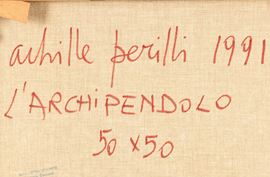 achille perilli 1991
L'ARCHIPENDOLO
50 x 50